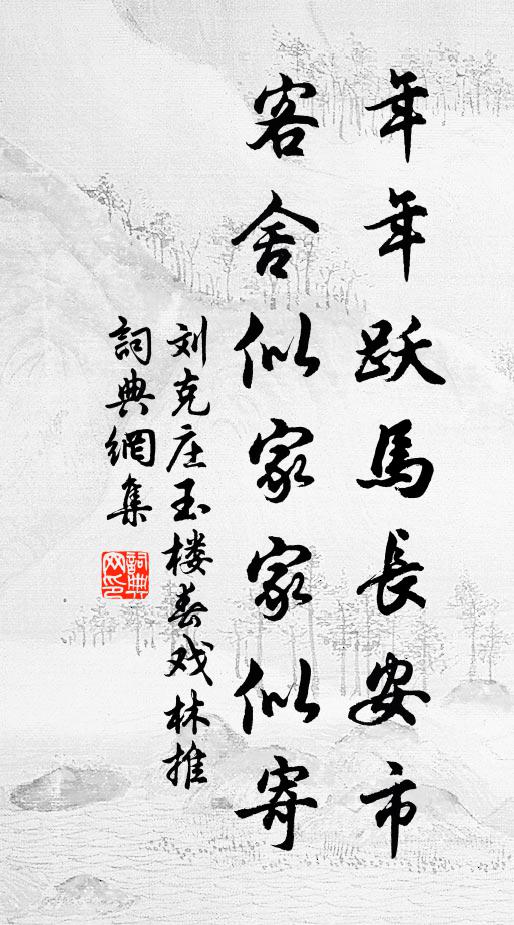 年年跃馬長安市
客舍似家家似寄
刘克庄玉楼春戏林推
詞典網集
詞典網印